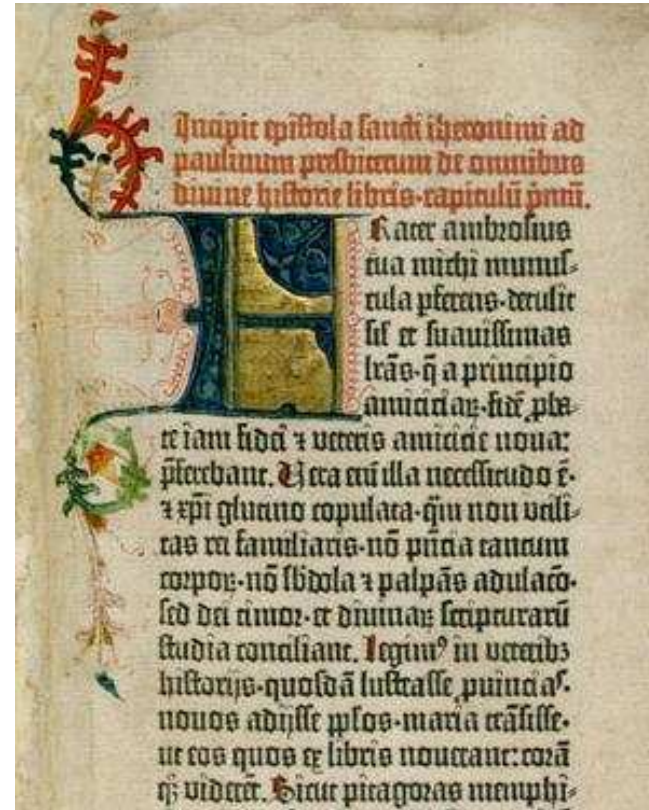 Incipit epistola sancti iheronimi ad
paulinum presbiterum de omnibus
divine historie libris·capitulū pmū.
Frater ambrosius
tua michi munus-
cula pferens·detulit
sil et suavissimas
lrās·q̄ a principio
amiciciaꝝ·fidē pba-
te iam fidei ⁊ veteris amicicie nova:
pferebant. Vera em̄ illa necessitudo ē·
⁊ xp̄i glutino copulata·qm̄ non utili-
tas rei familiaris·nō pn̄cia tantum
corpoꝝ·nō sbdola ⁊ palpās adulacō·
sed dei timor·et divinaꝝ scripturarū
studia conciliant. Legimꝰ in veteribꝫ
historijs·quosdā lustrasse puincias·
novos adijsse pplos·maria trāsisse·
ut eos quos ex libris noverant: corā
qꝫ viderēt. Sicut pitagoras memphi-